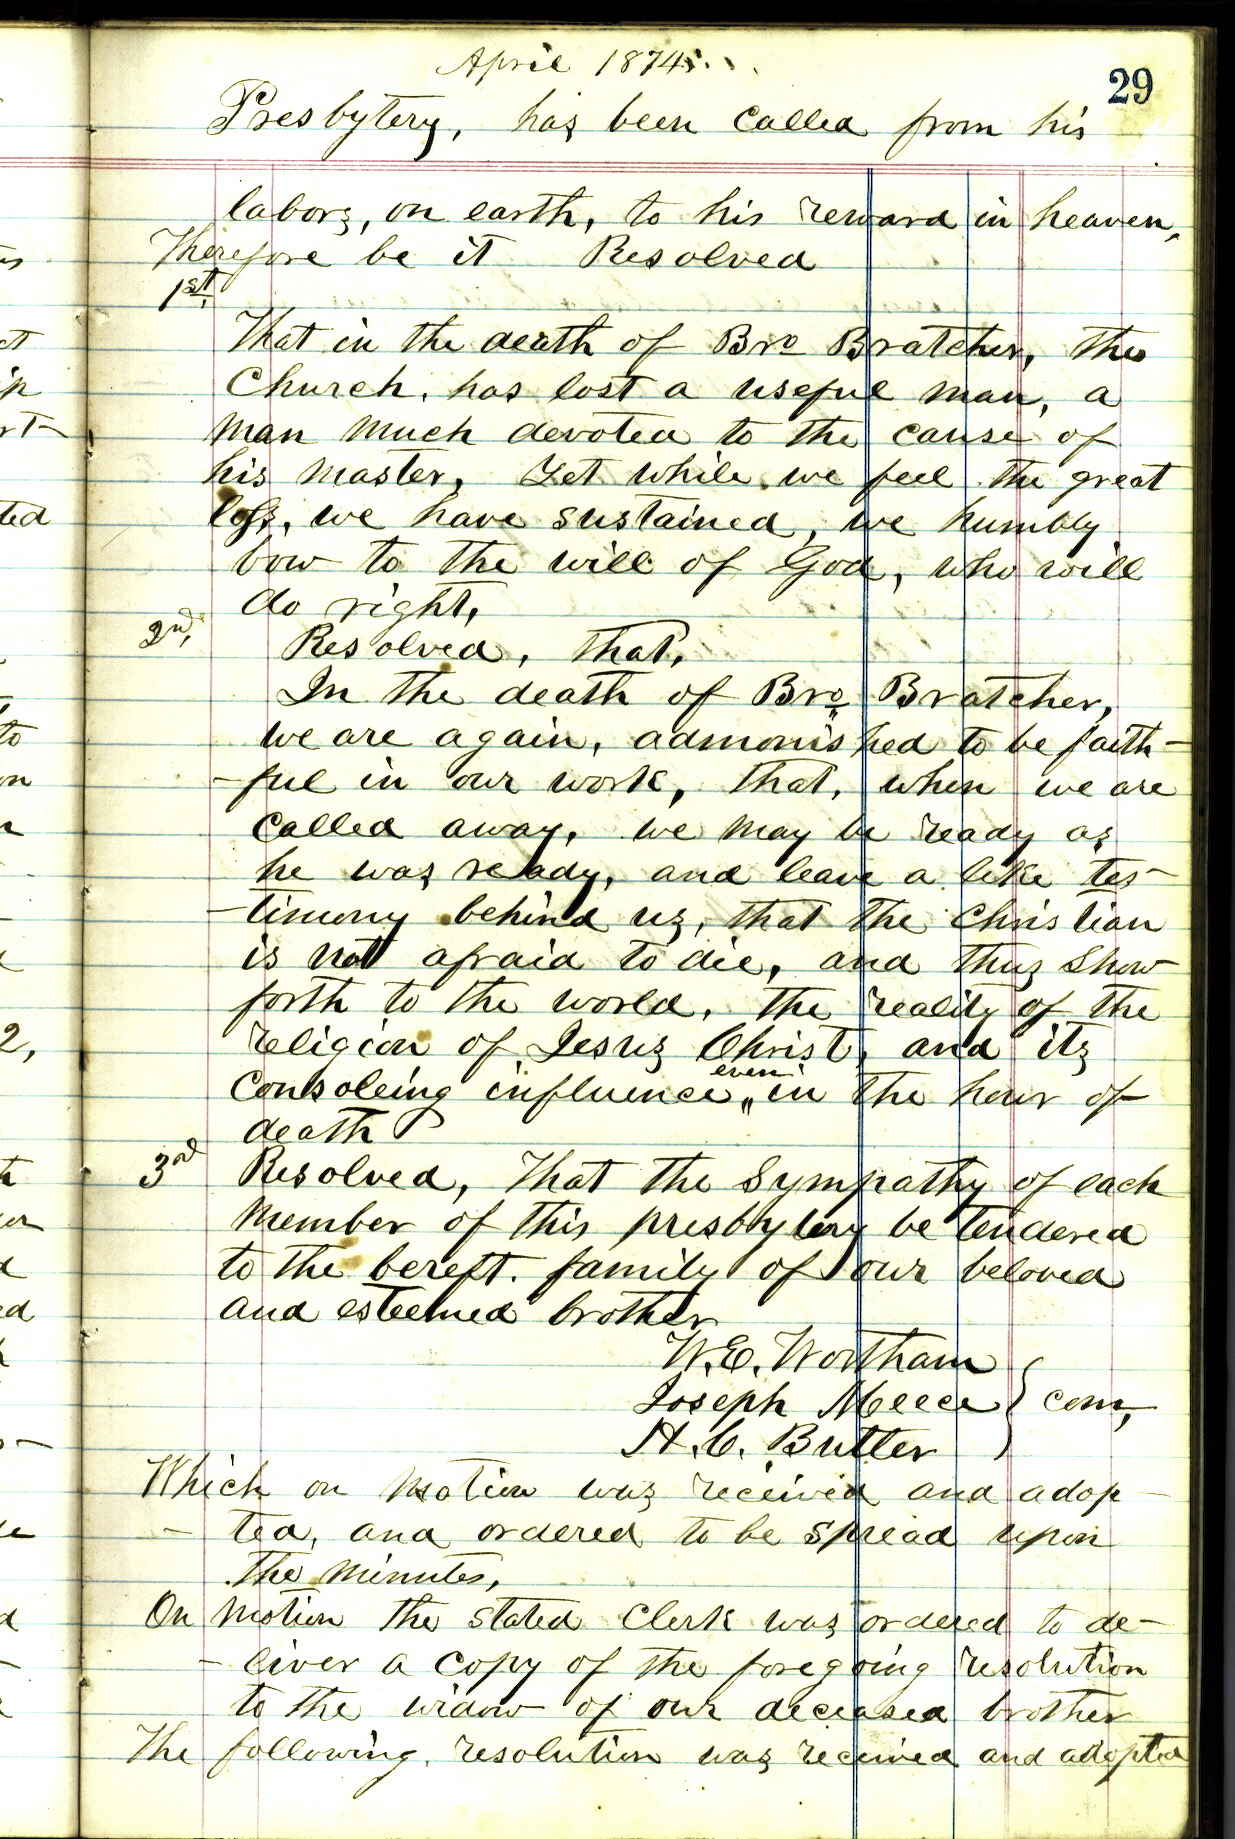 April 1874
29
Presbytery, has been called from his
labors, on earth, to his reward in heaven,
Therefore be it Resolved
1st,
That in the death of Bro Bratcher, the
Church, has lost a useful man, a
man much devoted to the cause of
his master, Yet while we feel the great
loss, we have sustained, we humbly
bow to the will of God, who will
do right,
2nd,
Resolved, that,
In the death of Bro Bratcher,
we are again, admonished to be faith-
-ful in our work, that, when we are
called away, we may be ready as
he was ready, and leave a like tes-
-timony behind us, that the Christian
is not afraid to die, and thus show
forth to the world, the reality of the
religion of Jesus Christ, and its
even
consoleing influence " in the hour of
death
3rd Resolved, That the Sympathy of each
member of this presbytery be tendered
to the bereft. family of our beloved
and esteemed brother
W. E. Wortham
Joseph Meece } com,
H. C. Butler
Which on motion was received and adop-
-ted, and ordered to be spread upon
the minutes,
On motion the stated Clerk was ordered to de-
-liver a copy of the foregoing resolution
to the widow of our deceased brother
The following, resolution was received and adopted
ted
to
2,